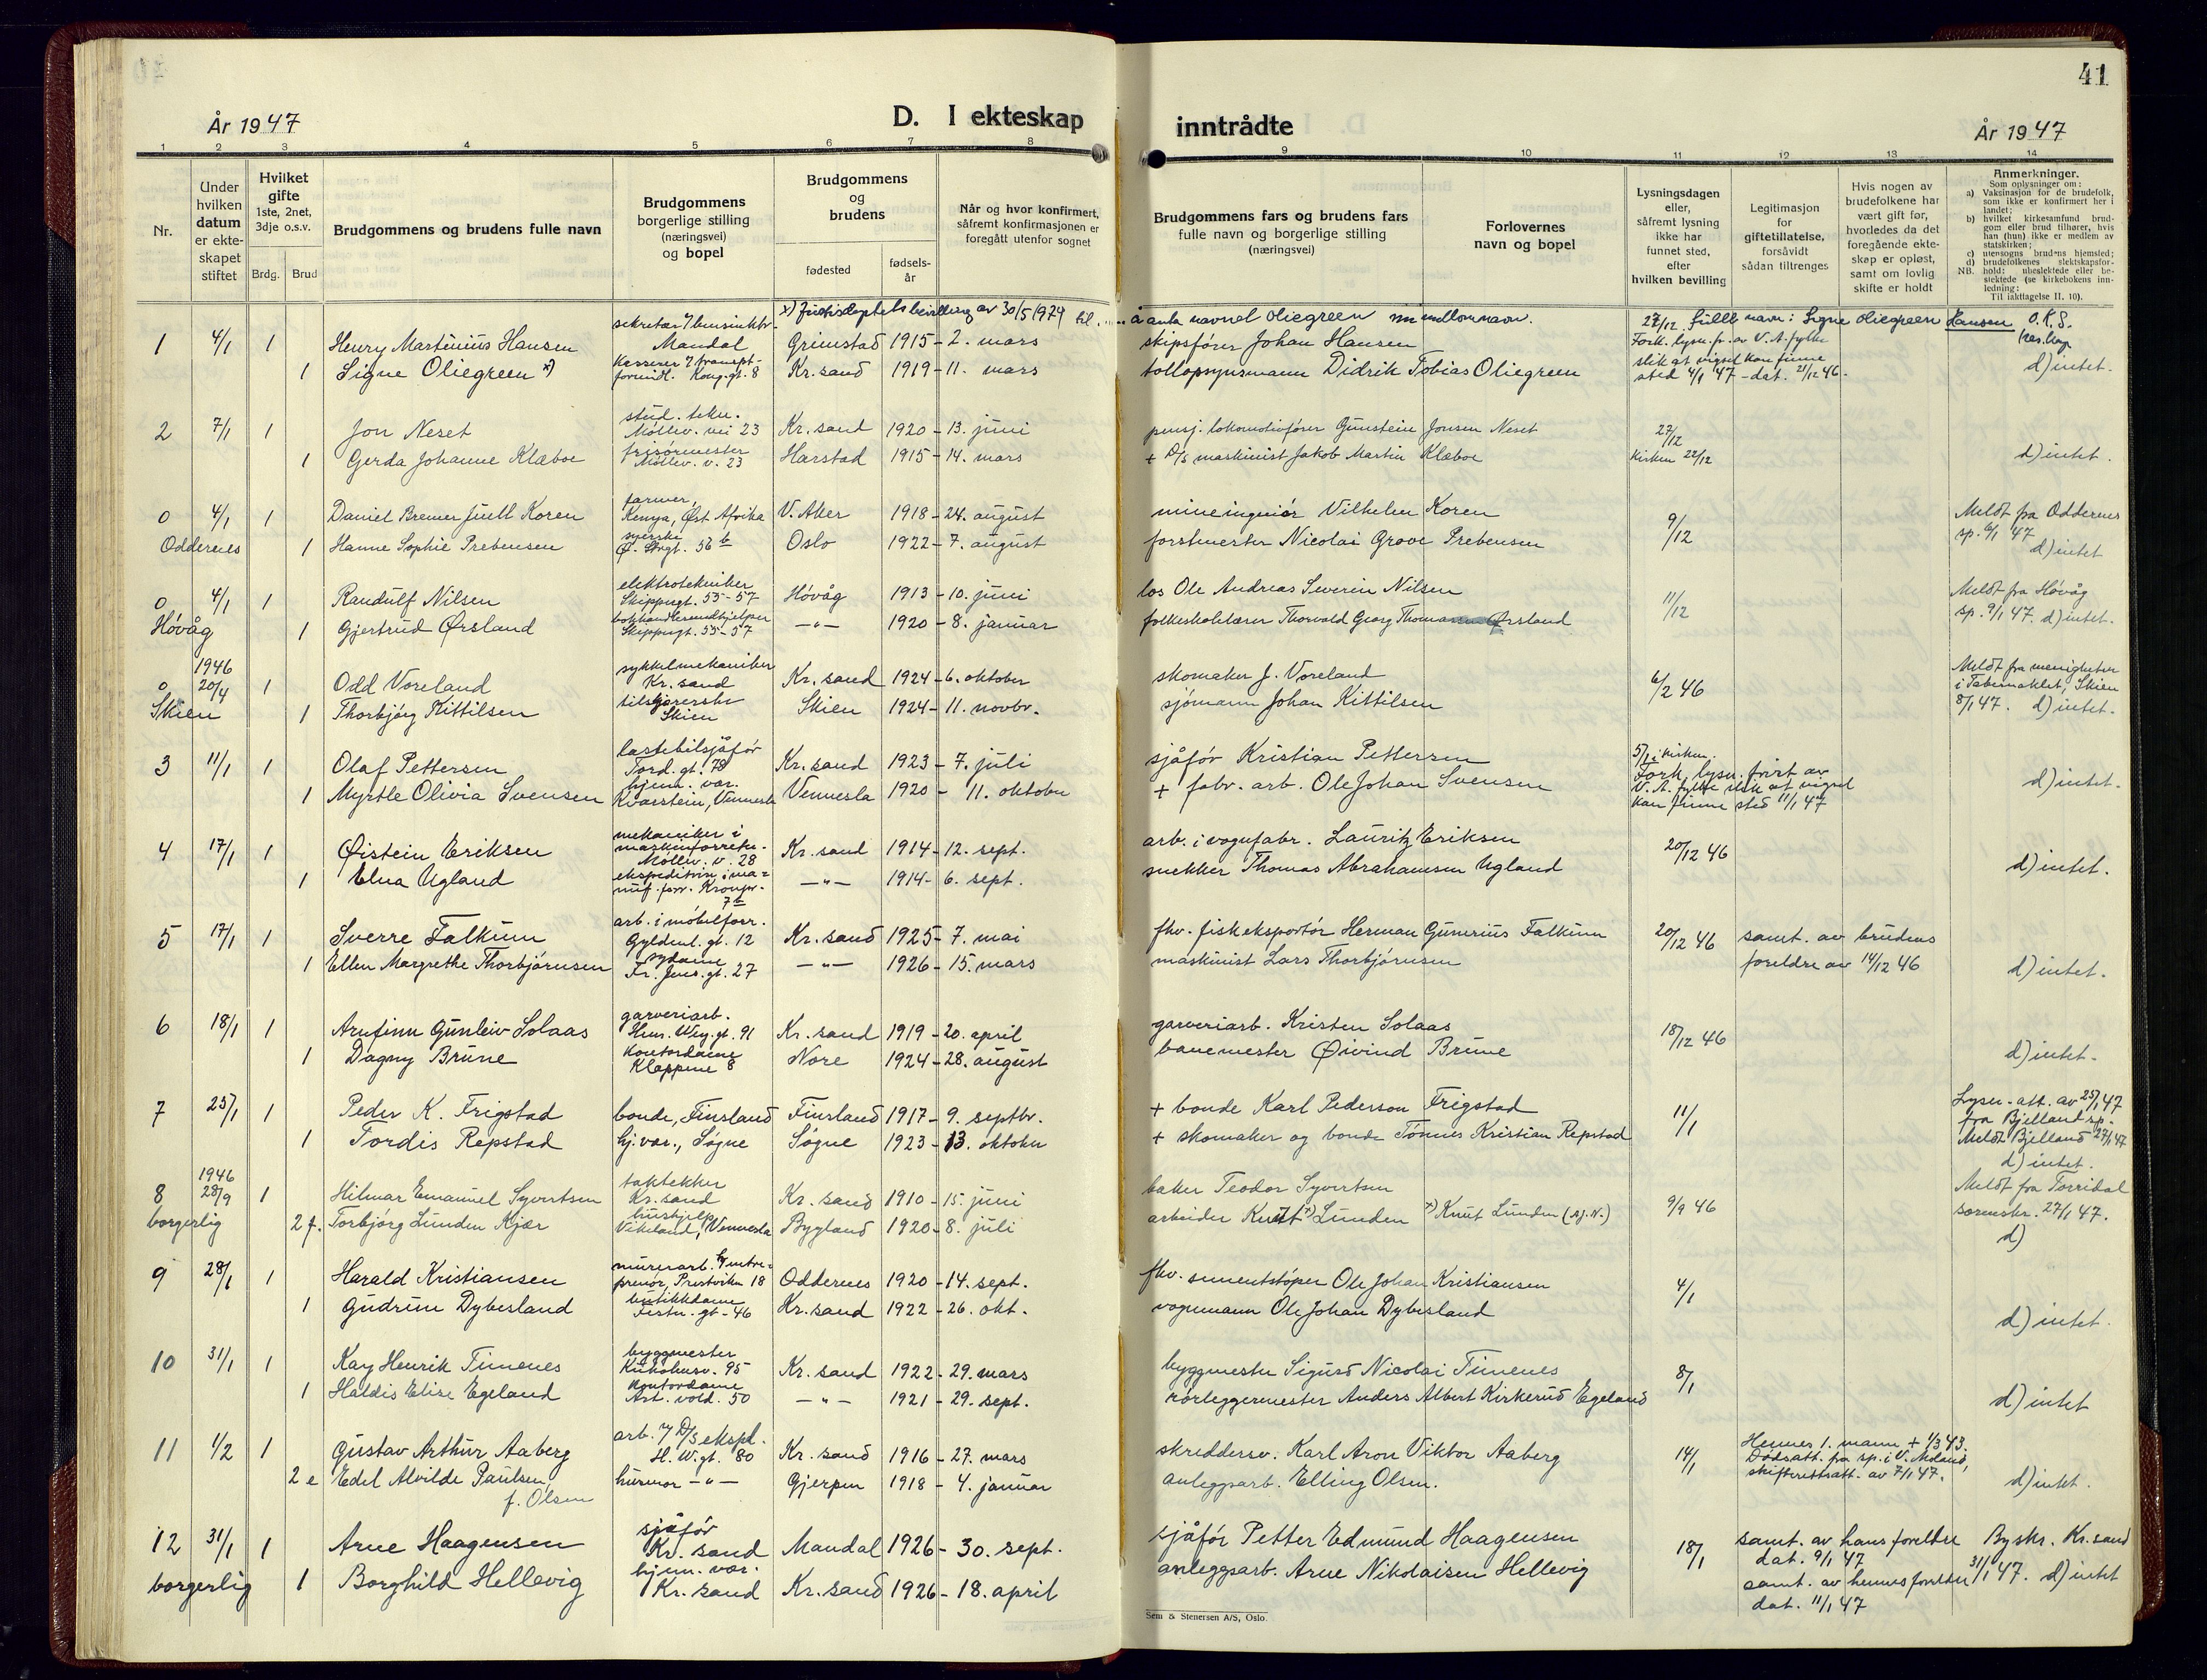 41
År 1947
D. I ekteskap
inntrådte
År 1947
1 2 3 4 5 6 7 8 9 10 11 12 13 14
Nr.
Under
hvilken
datum
er ekte-
skapet
stiftet
Hvilket
gifte
1ste, 2net,
3dje o.s.v.
Brdg. Brud
Brudgommens og brudens fulle navn
Brudgommens
borgerlige stilling
(næringsvei)
og bopel
Brudgommens
og
brudens
fødested
fødsels-
år
Når og hvor konfirmert,
såfremt konfirmasjonen er
foregått utenfor sognet
Brudgommens fars og brudens fars
fulle navn og borgerlige stilling
(næringsvei)
Forlovernes
navn og bopel
Lysningsdagen
eller,
såfremt lysning
ikke har
funnet sted,
efter
hvilken bevilling
Legitimasjon
for
giftetillatelse,
forsåvidt
sådan tiltrenges
Hvis nogen av
brudefolkene har
vært gift før,
hvorledes da det
foregående ekte-
skap er opløst,
samt om lovlig
skifte er holdt
Anmerkninger.
Som oplysninger om:
a) Vaksinasjon for de brudefolk,
som ikke er konfirmert her i
landet;
b) hvilket kirkesamfund brud-
gom eller brud tilhører, hvis
han (hun) ikke er medlem av
statskirken;
c) utensogns brudens hjemsted;
d) brudefolkenes slektskapsfor-
NB. hold: ubeslektede eller be-
slektede (se kirkebokens inn-
ledning:
Til iakttagelse II, 10).
x) Justisdeptets bevilling av 30/5 1974 til ..... å anta navnet Oliegreen som mellomnavn.
27/12. fulle navn: Signe Oliegreen Hansen O.K.S.
1 4/1 1 Henry Martinius Hansen Mandal Grimstad 1915 - 2. mars skipsfører Johan Hansen
1 Signe Oliegreen x) Kong.gt. 8 Kr.sand 1919 - 11. mars tollopsynsmann Didrik Tobias Oliegreen
Fork. lysn. fr. av V. A. fylke
slik at vigsel kan finne
sted 4/1 47 - dat. 21/12 46 - d) intet.
2 7/1 1 Jon Neset stud. tekn. Møllev. vei 23 Kr. sand 1920 - 13. juni pensj. lokomotivfører Gunstein Jonsen Neset 27/12
1 Gerda Johanne Klæboe frisørmester Møllev. v. 23 Harstad 1915 - 14. mars + D/S maskinist Jakob Martin Klæboe Kirken 22/12 d) intet.
0 4/1 1 Daniel Bremer Juell Koren farmer, Kenya, Øst Afrika V. Aker 1918 - 24. august mineingeniør Vilhelm Koren 9/12 Meldt fra Oddernes
Oddernes 1 Hanne Sophie Prebensen syerske Ø. Strgt. 56 b Oslo 1922 - 7. august forstmester Nicolai Grove Prebensen sp. 6/1 47 d) intet
0 4/1 1 Randulf Nilsen elektrotekniker Skippergt. 55-57 Høvåg 1913 - 10. juni los Ole Andreas Severin Nilsen 11/12 Meldt fra Høvåg
Høvåg 1 Gjertrud Ørsland bokhandlermedhjelper Skippergt. 55-57 — " — 1920 - 8. januar folkeskolelærer Thorvald Georg Thomassen Ørsland sp. 9/1 47. d) intet.
1946
0 20/4 1 Odd Voreland sykkelmekaniker Kr. sand Kr. sand 1924 - 6. oktober skomaker J. Voreland 6/2 46 Meldt fra menigheten
i Tabernaklet, Skien
Skien 1 Thorbjørg Kittilsen tilskjærerske Skien Skien 1924 - 11. novbr. sjømann Johan Kittilsen 8/1 47. d) intet.
3 11/1 1 Olaf Pettersen lastebilsjåfør Tord. gt. 78 Kr. sand 1923 - 7. juli sjåfør Kristian Pettersen 5/1 i kirken.
1 Myrtle Olivia Svensen hjem. vær. Kvarstein, Vennesla Vennesla 1920 - 11. oktober + fabr. arb. Ole Johan Svensen
Fork. lysn. frist av
V. A. fylke slik at vigsel
kan finne sted 11/1 47 d) intet.
4 17/1 1 Øistein Eriksen mekaniker i maskinforretn. Møllev. v. 28 Kr. sand 1914 - 12. sept. arb. i vognfabr. Lauritz Eriksen 20/12 46
1 Elna Ugland ekspeditrise i ma= nuf. forr. Kronpr. 7 b — " — 1914 - 6. sept. snekker Thomas Abrahamsen Ugland d) intet.
5 17/1 1 Sverre Falkum arb. i møbelforr. Gyldenl. gt. 12 Kr. sand 1925 - 7. mai fhv. fiskeksportør Herman Gunerius Falkum 20/12 46 samt. av brudens
1 Ellen Margrethe Thorbjørnsen sydame Fr. Jens. gt. 27 — " — 1926 - 15. mars maskinist Lars Thorbjørnsen foreldre av 14/12 46 d) intet.
6 18/1 1 Arnfinn Gunleiv Solaas garveriarb. Hens. Weg. gt. 91 Kr. sand 1919 - 20. april garveriarb. Kristen Solaas 18/12 46
1 Dagny Brune kontordame Kloppene 8 Nore 1924 - 28. august banemester Øivind Brune d) intet.
7 25/1 1 Peder K. Frigstad bonde, Finsland Finsland 1917 - 9. septbr. + bonde Karl Pederson Frigstad 11/1 Lysn.-att. av 25/1 47
fra Bjelland sp.
1 Tordis Repstad hj.vær., Søgne Søgne 1923 - 13. oktober + skomaker og bonde Tønnes Kristian Repstad Meldt Bjelland 27/1 47
d) intet.
1946
8 28/9 1 Hilmar Emanuel Syvertsen taktekker Kr. sand Kr. sand 1910 - 15. juni baker Teodor Syvertsen 9/9 46 Meldt fra Torridal
borgerlig 2 f. Torbjørg Lunden Kjær hushjelp Vikeland, Vennesla Bygland 1920 - 8. juli arbeider Knut x) Lunden x) Knut Lunden (A.J.N.) sorenskr. 27/1 47.
d)
9 28/1 1 Harald Kristiansen murerarb. hr entre= prenør, Prestvikn 18 Oddernes 1920 - 14. sept. fhv. sementstøper Ole Johan Kristiansen 4/1
1 Gudrun Dybesland butikkdame Festn. gt. 46 Kr. sand 1922 - 26. okt. vognmann Ole Johan Dybesland d) intet.
10 31/1 1 Kay Henrik Timenes byggmester Kuholmsv. 95 Kr. sand 1922 - 29. mars byggmester Sigurd Nicolai Timenes 8/1
1 Haldis Elise Egeland kontordame Art. vold. 50 — " — 1921 - 29. sept. rørleggermester Anders Albert Kirkerud Egeland d) intet
11 1/2 1 Gustav Arthur Aaberg arb. v/ D/S eksped. H. W. gt. 80 Kr. sand 1916 - 27. mars skreddersv. Karl Aron Viktor Aaberg 14/1 Hennes 1. mann + 1/3 43.
Dødsatt. fra sp. i V. Moland,
2 e Edel Alvilde Paulsen, husmor — " — Gjerpen 1918 - 4. januar anleggsarb. Elling Olsen. skifterettsatt. av 7/1 47. d) intet.
f. Olsen
12 31/1 1 Arne Haagensen sjåfør Kr. sand Mandal 1926 - 30. sept. sjåfør Petter Edmund Haagensen 18/1 samt. av hans foreldre Byskr. Kr. sand
dat. 9/1 47 31/1 47. d) intet
borgerlig 1 Borghild Hellevig hjem. vær. Kr. sand Kr. sand 1926 - 18. april anleggsarb. Arne Nikolaisen Hellevig samt. av hennes foreldre
dat. 11/1 47
Sem & Stenersen A/S, Oslo.